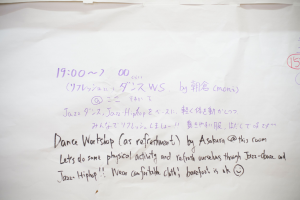 19:00〜
(リフレッシュ ダンス WS by 朝倉 (mona)
@ ここ
Jazzダンス、Jazz Hiphopを 軽く体を動かして
みんなで リフレッシュしましょー!! 動きやすい服、
Dance Workshop (as refreshment) by Asakura @ this room
Let's do some physical activity and refresh ourselves through Jazz-dance and
Jazz-Hiphop!! Wear comfortable cloth, barefoot is ok
15